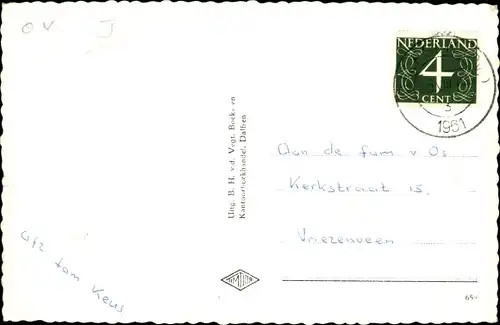 O V J
NEDERLAND
4
CENT
3
1961
Aan de fam v Os
Kerkstraat 15.
Vriezenveen
Uitg. B. H. v.d. Vegt. Boek- en
Kantoorboekhandel, Dalfsen
Afz fam
65